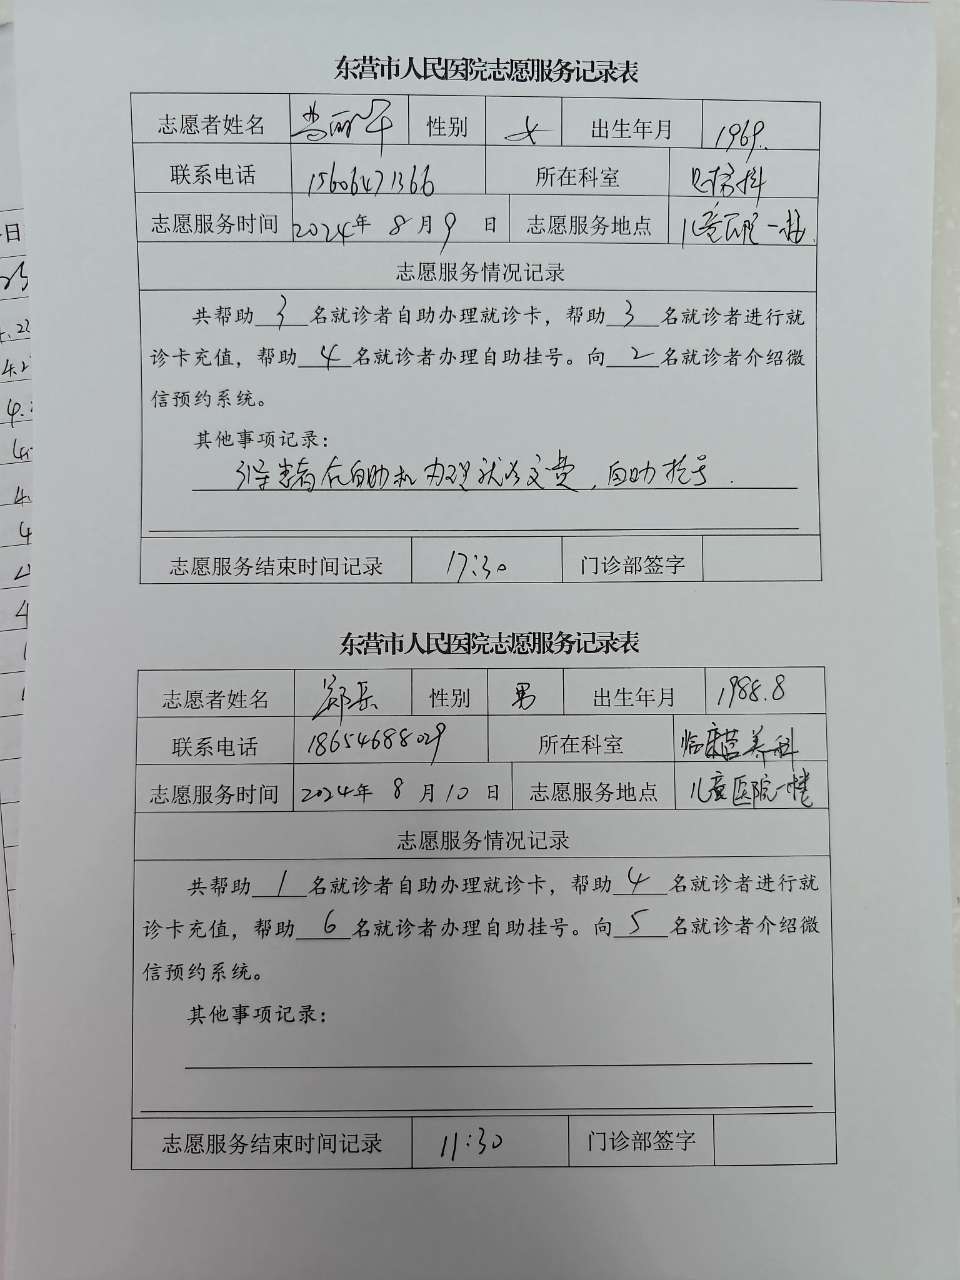 东营市人民医院志愿服务记录表
志愿者姓名 性别 女 出生年月 1969.
联系电话 15606471366 所在科室
志愿服务时间 2024年 8 月 9 日 志愿服务地点 儿童医院一楼.
志愿服务情况记录
共帮助 3 名就诊者自助办理就诊卡，帮助 3 名就诊者进行就
诊卡充值，帮助 4 名就诊者办理自助挂号。向 2 名就诊者介绍微
信预约系统。
其他事项记录：
引导患者在自助机办理就诊交费，自助挂号.
志愿服务结束时间记录 17:30 门诊部签字
东营市人民医院志愿服务记录表
志愿者姓名 郑岳 性别 男 出生年月 1988.8
联系电话 18654688029 所在科室 临床营养科
志愿服务时间 2024年 8 月 10 日 志愿服务地点 儿童医院一楼
志愿服务情况记录
共帮助 1 名就诊者自助办理就诊卡，帮助 4 名就诊者进行就
诊卡充值，帮助 6 名就诊者办理自助挂号。向 5 名就诊者介绍微
信预约系统。
其他事项记录：
志愿服务结束时间记录 11:30 门诊部签字